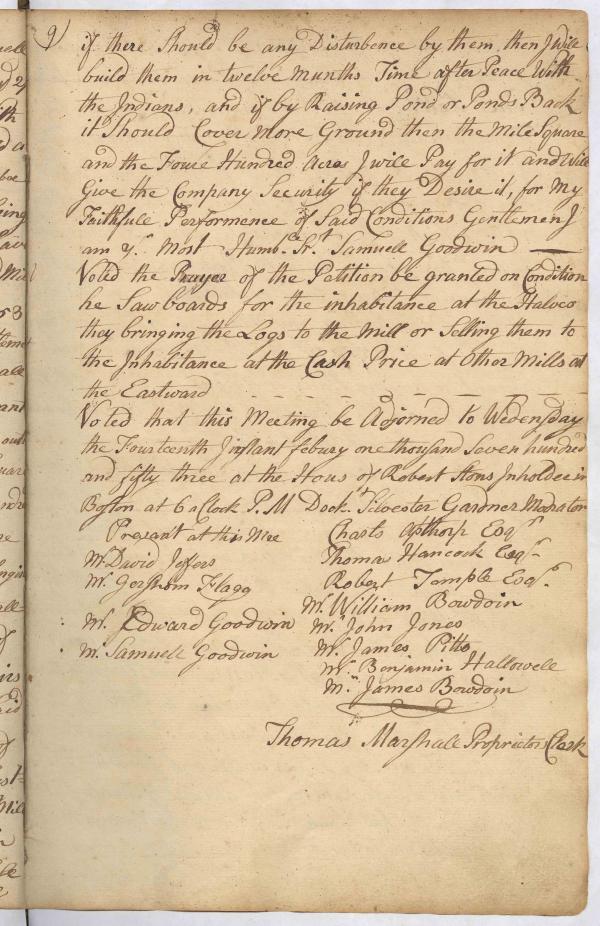 9)
if there Should be any Disturbence by them then J will
build them in twelve Munths Time after Peace With
the Jndians, and if by Raising Pond or Ponds Back
it Should Cover More Ground then the Mile Square
and the Foure Hundred Acres J will Pay for it and Will
Give the Company Security if they Desire it, for My
Faithfull Performence of Said Conditions Gentlemen J
am yr. Most Humble. Srt. Samuell Goodwin
Voted the Prayer of the Petition be granted on Condition
he Saw boards for the inhabitance at the Halves
they bringing the Logs to the Mill or Selling them to
the Jnhabitance at the Cash Price at Other Mills at
the Eastward
Voted that this Meeting be Adjorned to Wedensday
the Fourteenth Jnstant febury one thousand Seven hundred
and fifty three at the Hous of Robert Stons Jnholder in
Boston at 6 a Clock P.M Doct. Silvester Gardner Modrator
Presant at this Mee
Mr David Jeffers
Mr. Gershom Flagg
Mr. Edward Goodwin
Mr. Samuell Goodwin
Charls Apthorp Esqr.
Thomas Hancock Esqr.
Robert Temple Esqr.
Mr. William Bowdoin
Mr. John Jones
Mr. James Pitts
Mr. Benjamin Hallowell
Mr. James Bowdoin
Thomas Marshall Proprietors Clerk